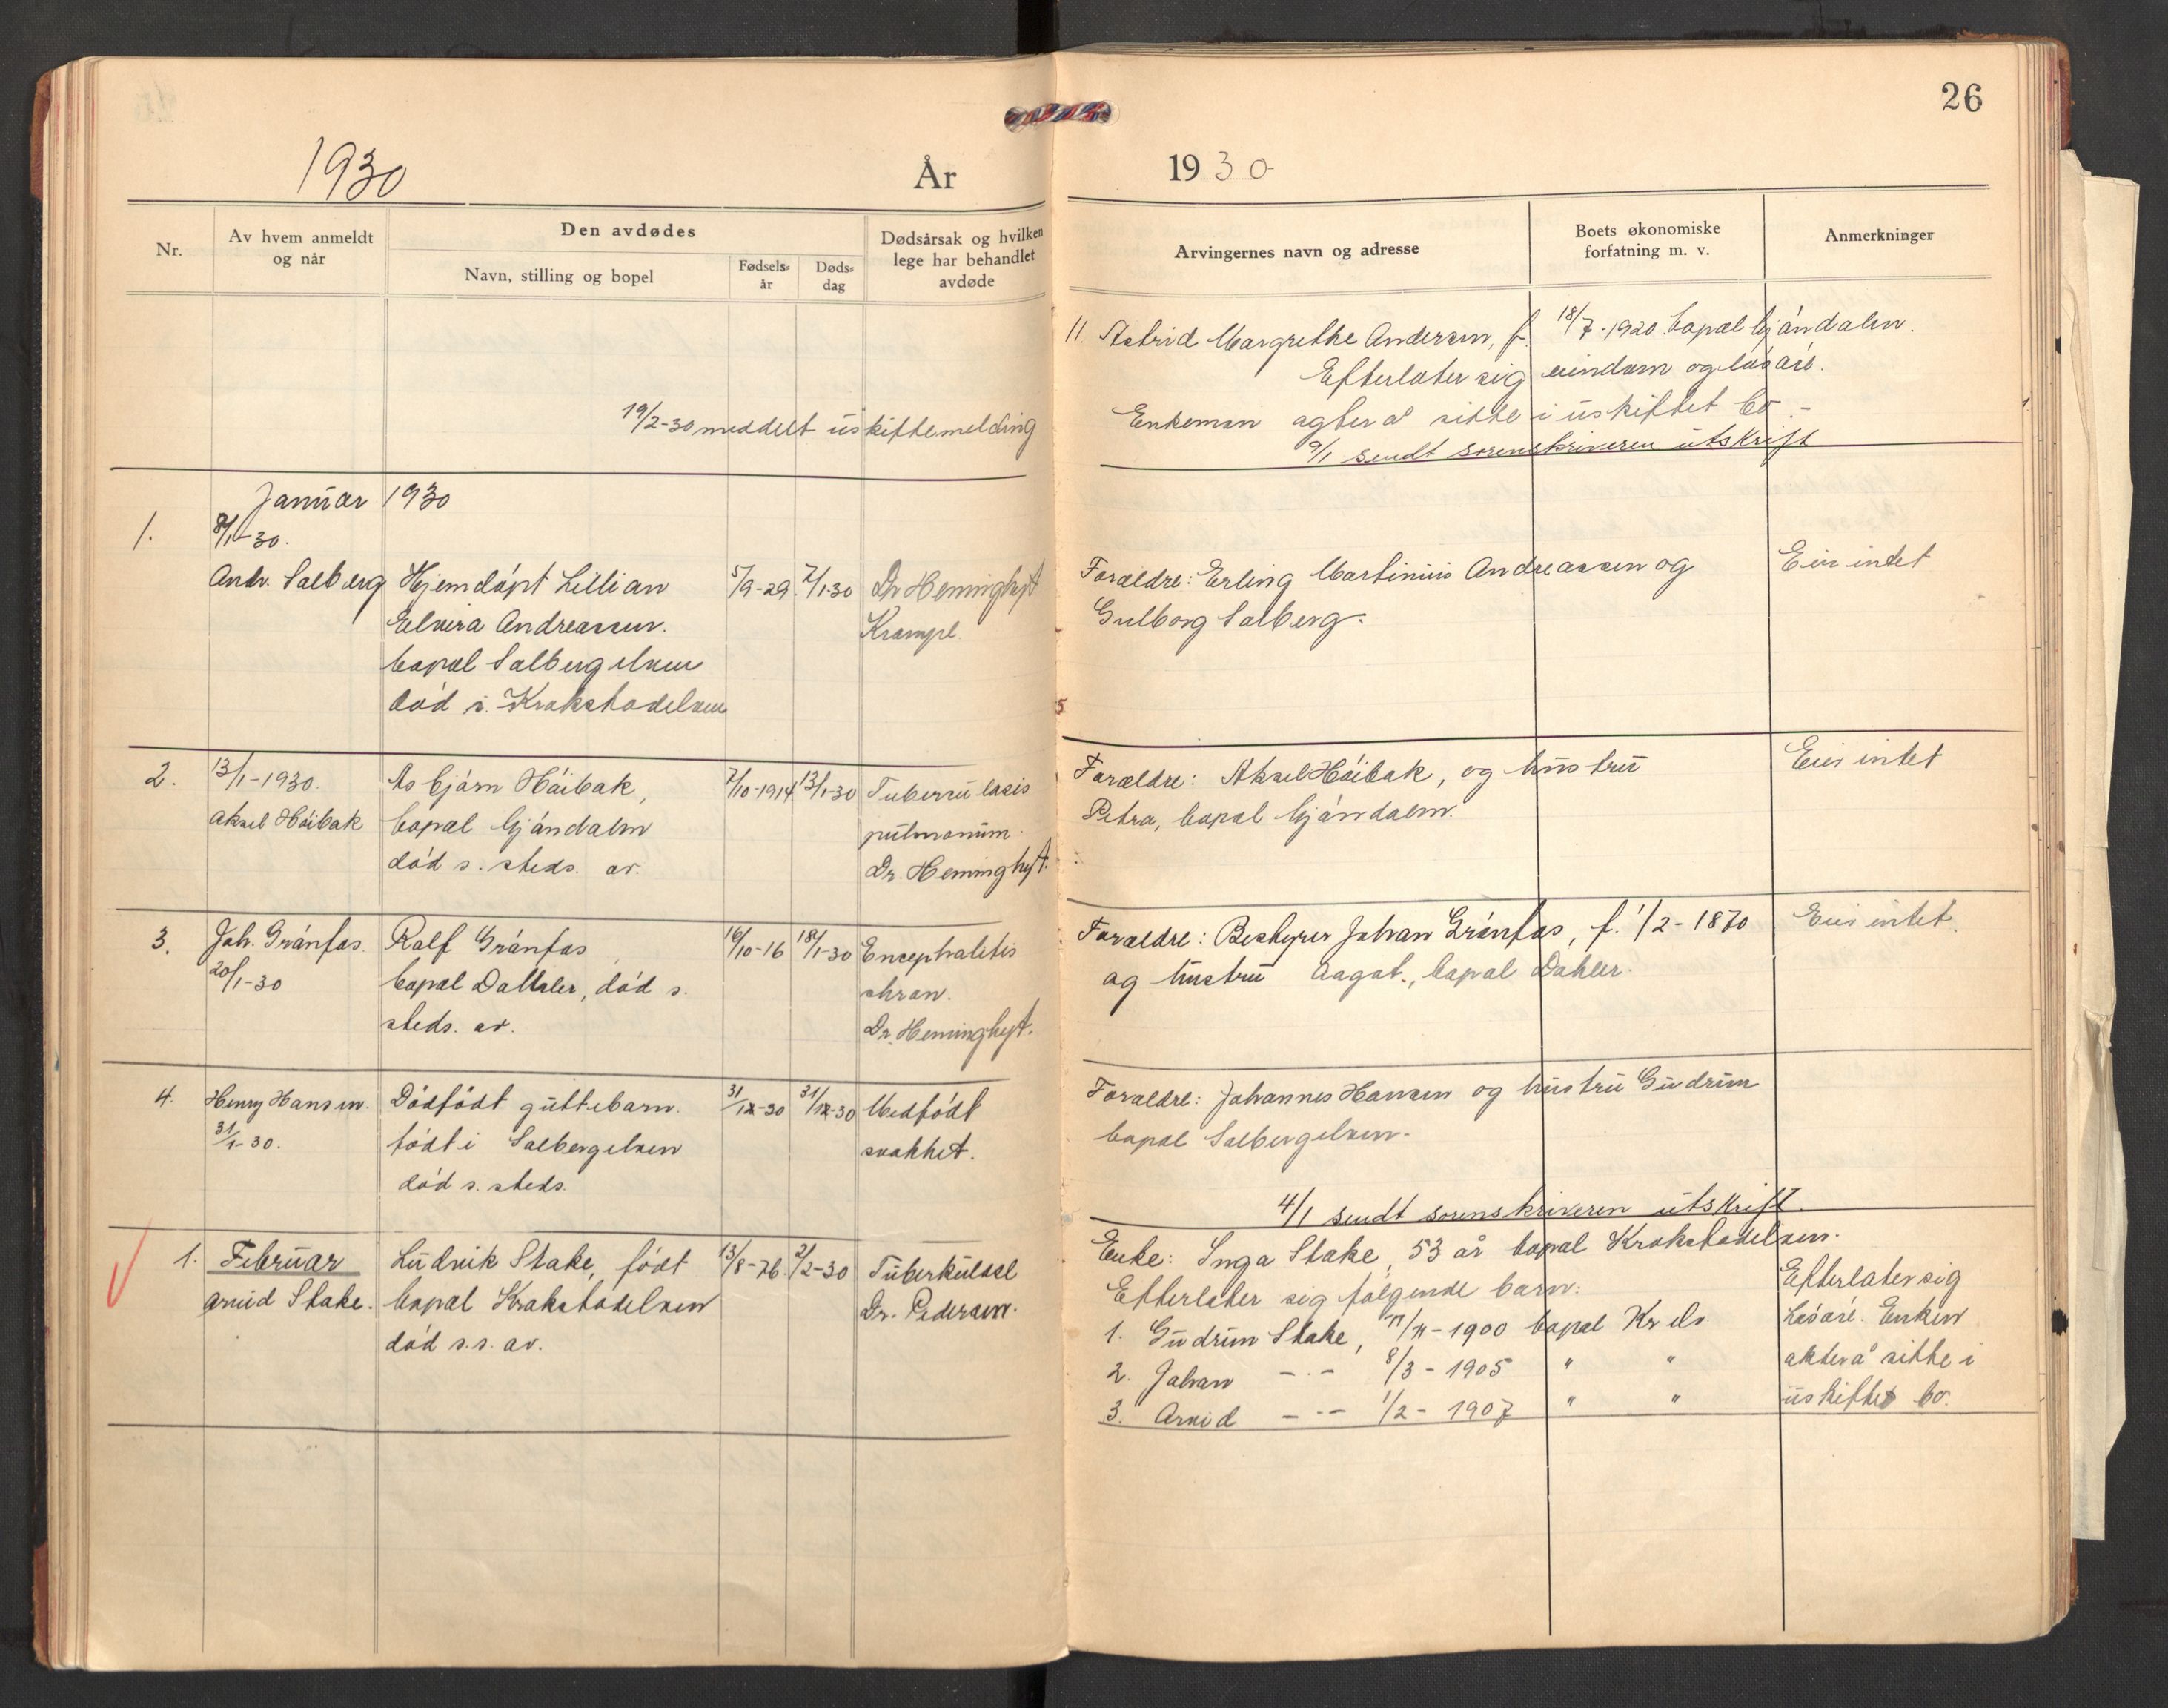 26
1930
År
1930
Nr.
Av hvem anmeldt
og når
Den avdødes
Navn, stilling og bopel
Fødsels-
år
Døds-
dag
Dødsårsak og hvilken
lege har behandlet
avdøde
Arvingernes navn og adresse
Boets økonomiske
forfatning m. v.
Anmerkninger
11. Astrid Margrethe Andersen, f. 18/7-1920. bopæl Gjøndalen.
Efterlater sig eiendom og løsøre.
19/2-30 meddelt uskiftemelding
Enkeman agter å sitte i uskiftet bo.-
9/1 sendt sorenskriveren utskrift
Januar 1930
1.
8/1-30.
Andr. Solberg
Hjemdøpt Lillian
Elvira Andreassen.
bopæl Solbergelven
død i. Krokstadelven
5/9-29.
7/1-30
Dr Heminghyt
Krampe.
Foreldre: Erling Martinius Andreassen og
Gulborg Solberg.
Eier intet
2.
13/1-1930.
Aksel Høibak
Asbjørn Høibak,
bopæl Gjøndalen
død s. steds. av.
7/10-1914
13/1-30
Tubercu losis
pulmonum.
Dr. Heminghyt.
Foreldre: Aksel Høibak, og hustru
Petra, bopæl Gjøndalen.
Eier intet
3.
Joh. Grønfos.
20/1-30
Ralf Grønfos
bopæl Dahler, død s.
steds. av.
16/10-16
18/1-30
Encephalitis
chron.
Dr. Heminghyt.
Foreldre: Bestyrer Johan Grønfos, f. 1/2-1870
og hustru Aagot., bopæl Dahler.
Eier intet.
4.
Henry Hansen.
31/1-30.
Dødfødt guttebarn.
født i Solbergelven
død s. steds.
31/12-30
31/12-30
Medfødt
svakhet.
Foreldre: Johannes Hansen og hustru Gudrun
bopæl Solbergelven.
4/1 sendt sorenskriveren utskrift.
1. Februar
Arvid Stake.
Ludvik Stake, født
bopæl Krokstadelven
død s.s. av.
13/8-76.
2/2-30
Tuberkulose
Dr. Pedersen.
Enke: Inga Stake, 53 år bopæl Krokstadelven.
Efterlater sig følgende barn:
1. Gudrun Stake, 11/11-1900 bopæl Kr elv
2. Johan -.- 8/3-1905 " "
3. Arvid -.- 1/2-1907 " "
Efterlater sig
løsøre. Enken
akter å sitte i
uskiftet bo.